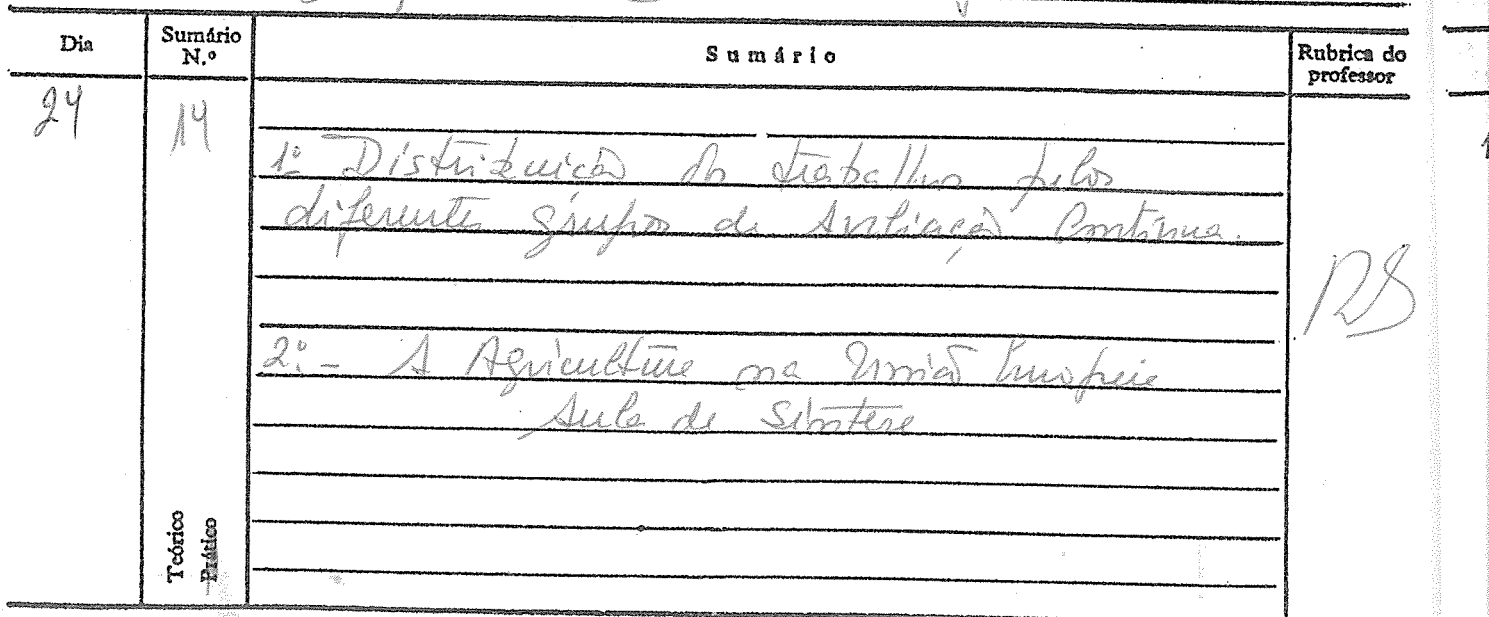 Dia
Sumário N.º
Sumário
Rubrica do professor
24
14
1º Distribuição do trabalho pelos
diferentes grupos de Avaliação Contínua.
2º - A Agricultura na União Europeia
Aula de Síntese
RS
Teórico
Prático